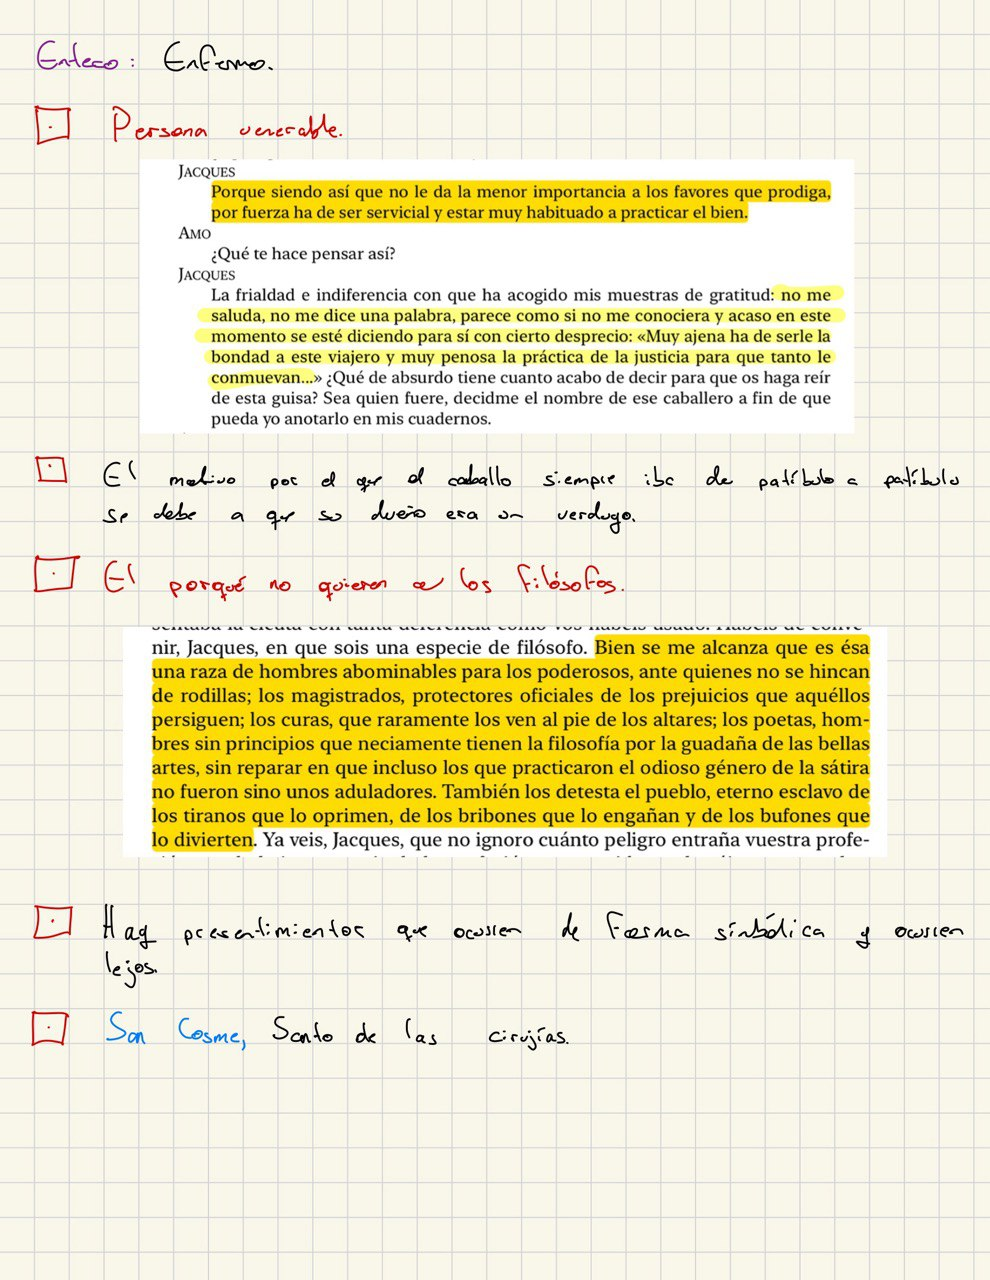 Enteco: Enfermo.
Persona venerable.
JACQUES
Porque siendo así que no le da la menor importancia a los favores que prodiga,
por fuerza ha de ser servicial y estar muy habituado a practicar el bien.
AMO
¿Qué te hace pensar así?
JACQUES
La frialdad e indiferencia con que ha acogido mis muestras de gratitud: no me
saluda, no me dice una palabra, parece como si no me conociera y acaso en este
momento se esté diciendo para sí con cierto desprecio: «Muy ajena ha de serle la
bondad a este viajero y muy penosa la práctica de la justicia para que tanto le
conmuevan...» ¿Qué de absurdo tiene cuanto acabo de decir para que os haga reír
de esta guisa? Sea quien fuere, decidme el nombre de ese caballero a fin de que
pueda yo anotarlo en mis cuadernos.
El motivo por el que el caballo siempre iba de patíbulo a patíbulo
se debe a que su dueño era un verdugo.
El porqué no quieren a los filósofos.
nir, Jacques, en que sois una especie de filósofo. Bien se me alcanza que es ésa
una raza de hombres abominables para los poderosos, ante quienes no se hincan
de rodillas; los magistrados, protectores oficiales de los prejuicios que aquéllos
persiguen; los curas, que raramente los ven al pie de los altares; los poetas, hom-
bres sin principios que neciamente tienen la filosofía por la guadaña de las bellas
artes, sin reparar en que incluso los que practicaron el odioso género de la sátira
no fueron sino unos aduladores. También los detesta el pueblo, eterno esclavo de
los tiranos que lo oprimen, de los bribones que lo engañan y de los bufones que
lo divierten. Ya veis, Jacques, que no ignoro cuánto peligro entraña vuestra profe-
Hay presentimientos que ocurren de forma simbólica y ocurren
lejos.
San Cosme, Santo de las cirujías.